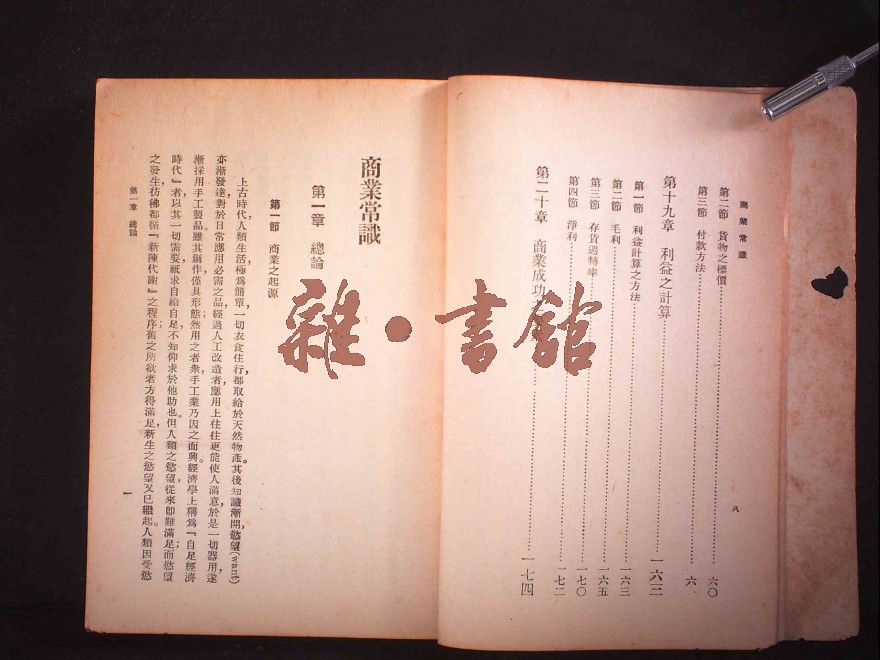 商業常識
第二節 貨物之標價 六〇
第三節 付款方法 六
第十九章 利益之計算 一六二
第一節 利益計算之方法
第二節 毛利 一六三
第三節 存貨週轉率 一六五
第四節 淨利 一七〇
一七二
第二十章 商業成功 一七四
八
商業常識
第一章 總論
第一節 商業之起源
上古時代，人類生活極爲簡單，一切衣食住行，都取給於天然物產。其後知識漸開，慾望(want)
亦漸發達，對於日常應用必需之品，經過人工改造者，應用上往往更能使人滿意，於是一切器用，遂
漸採用手工製品。雖其創作僅具形態，然用之者衆，手工業乃因之而興。經濟學上稱爲『自足經濟
時代』者，以其一切需要，祇求自給自足，不知仰求於他助也。但人類之慾望，從來即難滿足，而慾望
之發生，彷彿都循『新陳代謝』之程序；舊之所欲者方得滿足，新生之慾望又已繼起。人類因受慾
第一章 總論
一
雜·書館